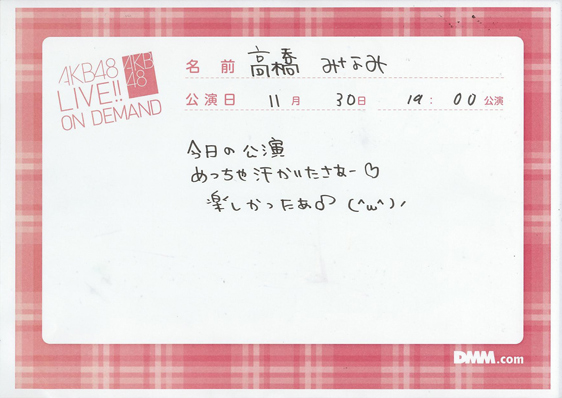 AKB48
LIVE!!
ON DEMAND
AKB
48
名 前 高橋 みなみ
公演日 11月 30日 19:00公演
今日の公演
めっちゃ汗かいたさぁー♡
楽しかったぁ♪ (^ω^)ノ
DMM.com